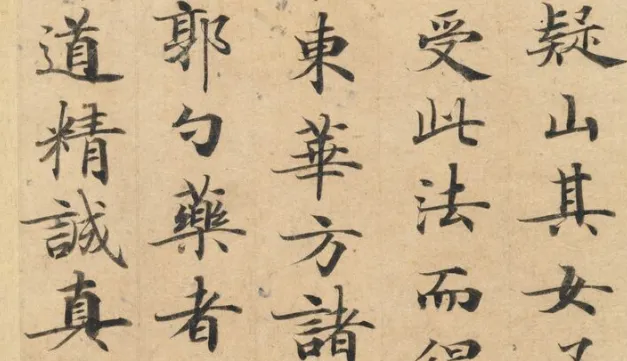 疑山其女子
受此法而得
東華方諸
郭勺藥者
道精誠真